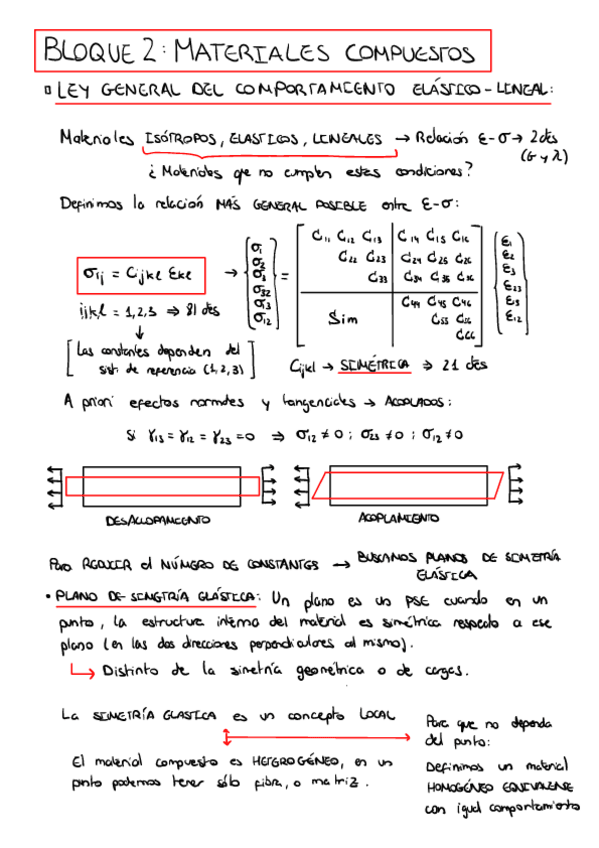 BLOQUE 2: MATERIALES COMPUESTOS
LEY GENERAL DEL COMPORTAMIENTO ELÁSTICO-LINEAL:
Materiales ISÓTROPOS, ELASTICOS, LINEALES → Relación ε-σ → 2 ctes
(G y λ)
¿Materiales que no cumplen estas condiciones?
Definimos la relación MÁS GENERAL POSIBLE entre ε-σ:
σij = Cijkl εkl → { σ1 σ2 σ3 σ32 σ13 σ12 } = [ C11 C12 C13 C14 C15 C16
C22 C23 C24 C25 C26
C33 C34 C35 C36
Sim C44 C45 C46
C55 C56
C66 ] { ε1 ε2 ε3 ε23 ε13 ε12 }
ijkl = 1,2,3 ⇒ 81 ctes
↓
[Las constantes dependen del
sist. de referencia (1,2,3)]
Cijkl → SIMÉTRICA ⇒ 21 ctes
A priori efectos normales y tangenciales → ACOPLADOS:
Si γ13 = γ12 = γ23 = 0 ⇒ σ12 ≠ 0 ; σ23 ≠ 0 ; σ12 ≠ 0
DESACLOPAMIENTO
ACOPLAMIENTO
Para REDUCIR el NÚMERO DE CONSTANTES → BUSCAMOS PLANOS DE SIMETRÍA
ELÁSTICA
• PLANO DE SIMETRÍA ELÁSTICA: Un plano es un PSE cuando en un
punto, la estructura interna del material es simétrica respecto a ese
plano (en las dos direcciones perpendiculares al mismo).
↳ Distinto de la simetría geométrica o de cargas.
La SIMETRÍA ELASTICA es un concepto LOCAL
El material compuesto es HETEROGÉNEO, en un
punto podemos tener sólo fibra, o matriz.
Para que no dependa
del punto:
Definimos un material
HOMOGÉNEO EQUIVALENTE
con igual comportamiento